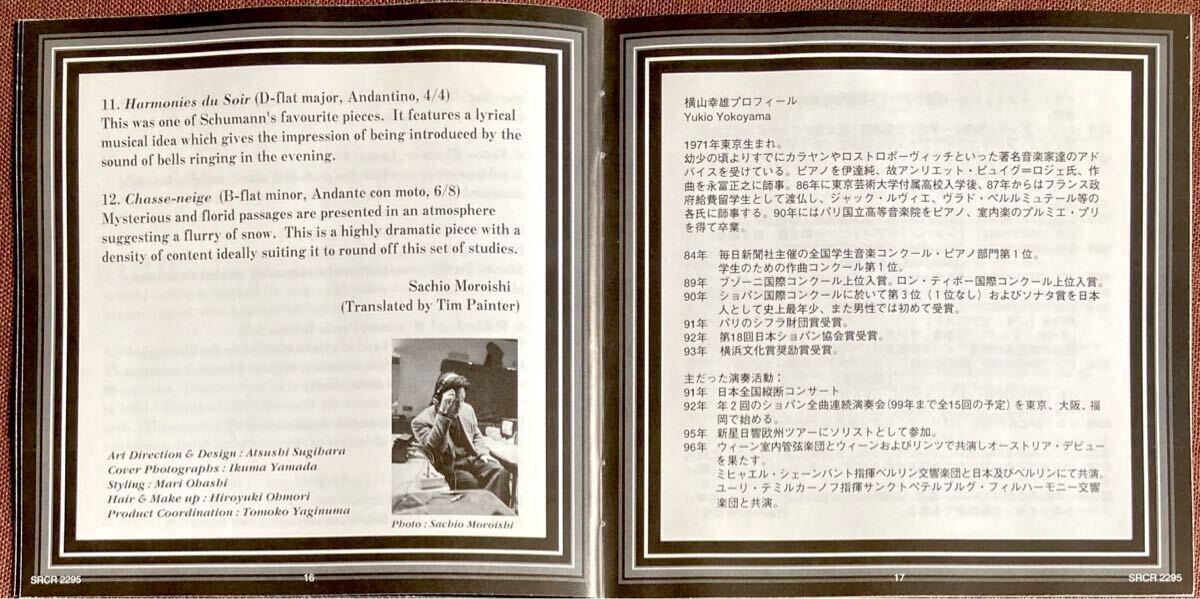 11. Harmonies du Soir (D-flat major, Andantino, 4/4)
This was one of Schumann's favourite pieces. It features a lyrical
musical idea which gives the impression of being introduced by the
sound of bells ringing in the evening.
12. Chasse-neige (B-flat minor, Andante con moto, 6/8)
Mysterious and florid passages are presented in an atmosphere
suggesting a flurry of snow. This is a highly dramatic piece with a
density of content ideally suiting it to round off this set of studies.
Sachio Moroishi
(Translated by Tim Painter)
Art Direction & Design : Atsushi Sugihara
Cover Photographs : Ikuma Yamada
Styling : Mari Ohashi
Hair & Make up : Hiroyuki Ohmori
Product Coordination : Tomoko Yaginuma
Photo : Sachio Moroishi
SRCR 2295
16
横山幸雄プロフィール
Yukio Yokoyama
1971年東京生まれ。
幼少の頃よりすでにカラヤンやロストロポーヴィッチといった著名音楽家達のアド
バイスを受けている。ピアノを伊達純、故アンリエット・ピュイグ＝ロジェ氏、作
曲を永冨正之に師事。86年に東京芸術大学付属高校入学後、87年からはフランス政
府給費留学生として渡仏し、ジャック・ルヴィエ、ヴラド・ペルルミュテール等の
各氏に師事する。90年にはパリ国立高等音楽院をピアノ、室内楽のプルミエ・プリ
を得て卒業。
84年 毎日新聞社主催の全国学生音楽コンクール・ピアノ部門第1位。
学生のための作曲コンクール第1位。
89年 ブゾーニ国際コンクール上位入賞。ロン・ティボー国際コンクール上位入賞。
90年 ショパン国際コンクールに於いて第3位（1位なし）およびソナタ賞を日本
人として史上最年少、また男性では初めて受賞。
91年 パリのシフラ財団賞受賞。
92年 第18回日本ショパン協会賞受賞。
93年 横浜文化賞奨励賞受賞。
主だった演奏活動：
91年 日本全国縦断コンサート
92年 年2回のショパン全曲連続演奏会(99年まで全15回の予定)を東京、大阪、福
岡で始める。
95年 新星日響欧州ツアーにソリストとして参加。
96年 ウィーン室内管弦楽団とウィーンおよびリンツで共演しオーストリア・デビュー
を果たす。
ミヒャエル・シェーンバント指揮ベルリン交響楽団と日本及びベルリンにて共演。
ユーリ・テミルカーノフ指揮サンクトペテルブルグ・フィルハーモニー交響
楽団と共演。
17
SRCR 2295